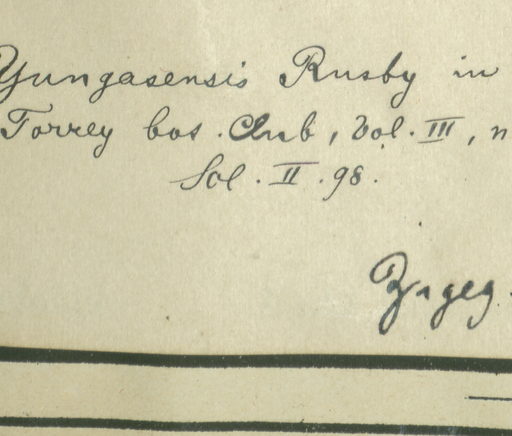 Yungasensis Rusby in
Torrey bot. Club, Vol. III, n
Sol. II. 98.